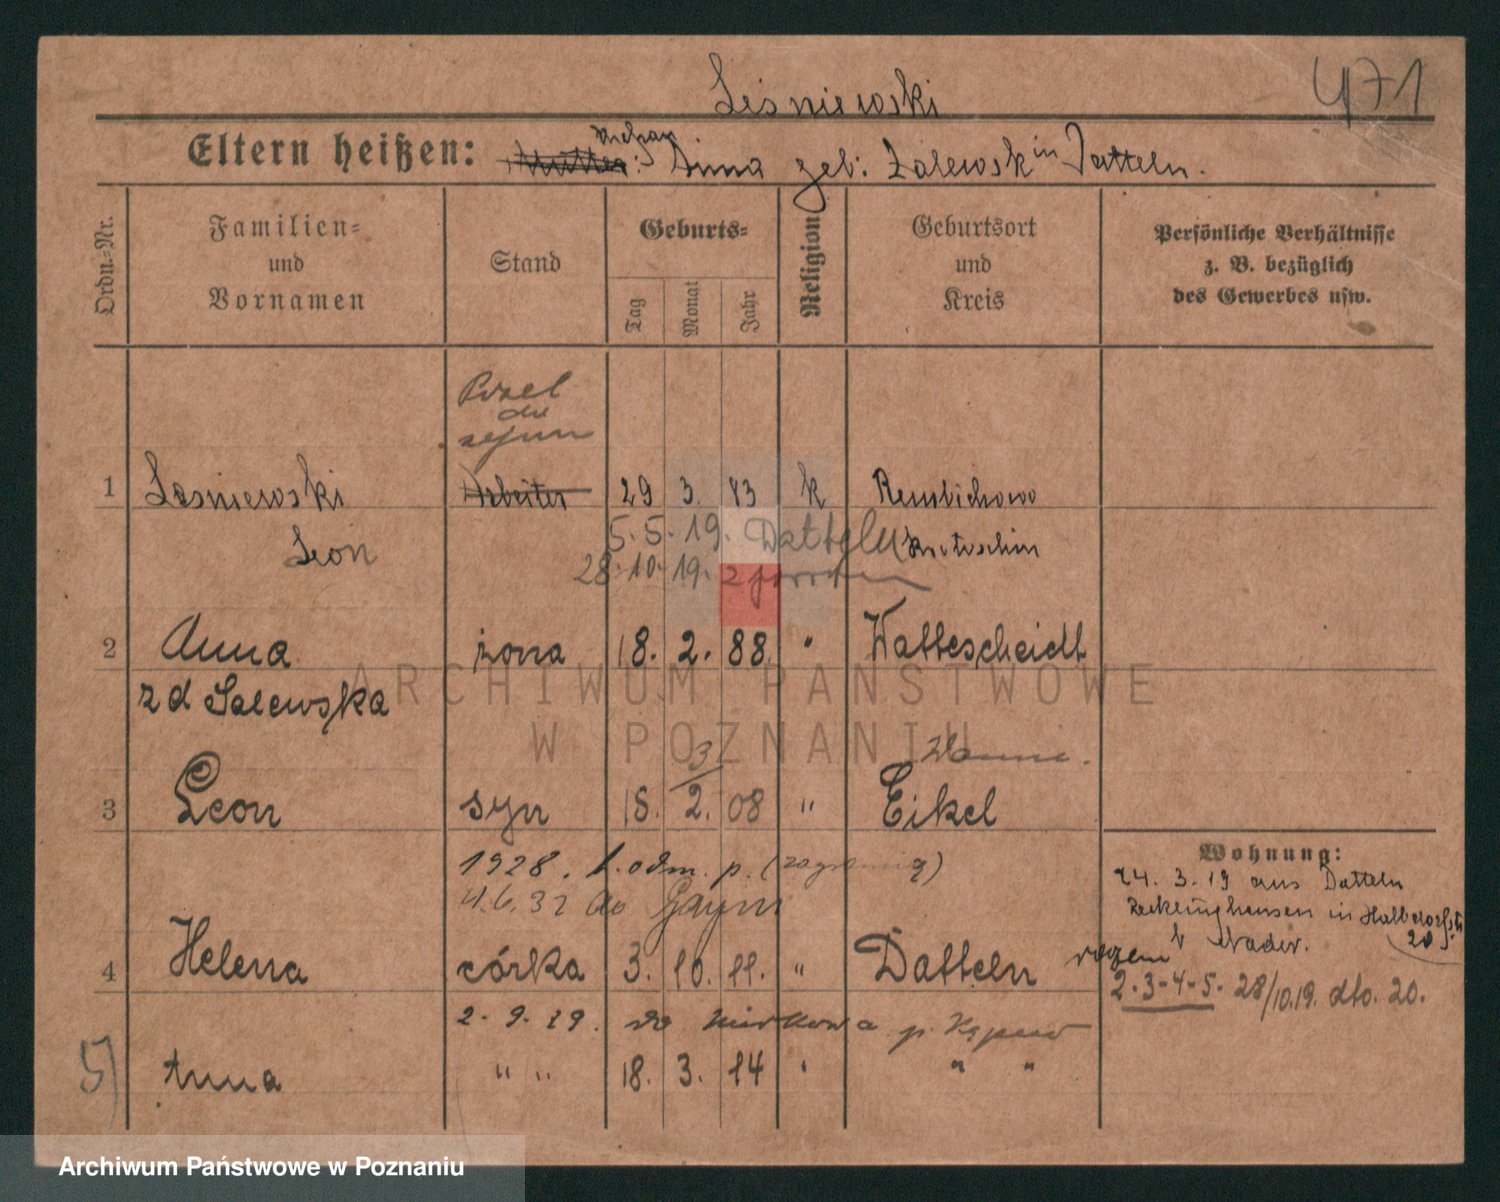 Leśniewski
471
Eltern heißen: Mutter: Anna geb: Zalewsk in Datteln.
Ordn.-Nr.
Familien-
und
Vornamen
Stand
Geburts-
Tag
Monat
Jahr
Religion
Geburtsort
und
Kreis
Persönliche Verhältnisse
z. B. bezüglich
des Gewerbes usw.
1 Lesniewski Arbeiter 29 3. 83 k Rembichowo
Leon Krotoschin
5. 5. 19. Datteln
28. 10. 19.
2 Anna żona 18. 2. 88 " Wattescheidt
z d Salewska
3 Leon syn 18. 2. 08 " Eikel
3
Wanne.
1928. odm. p. (zagranicą)
4.6.32 do
4 Helena córka 3. 10. 11. " Datteln
2. 9. 29. do p. Kępno
5) Anna " " 18. 3. 14 " " "
Wohnung:
24. 3. 19 aus Datteln
in Halbdorfstr
20 b Nader.
razem
2-3-4-5. 28/10.19. dto. 20.
ARCHIWUM PAŃSTWOWE
W POZNANIU
Archiwum Państwowe w Poznaniu